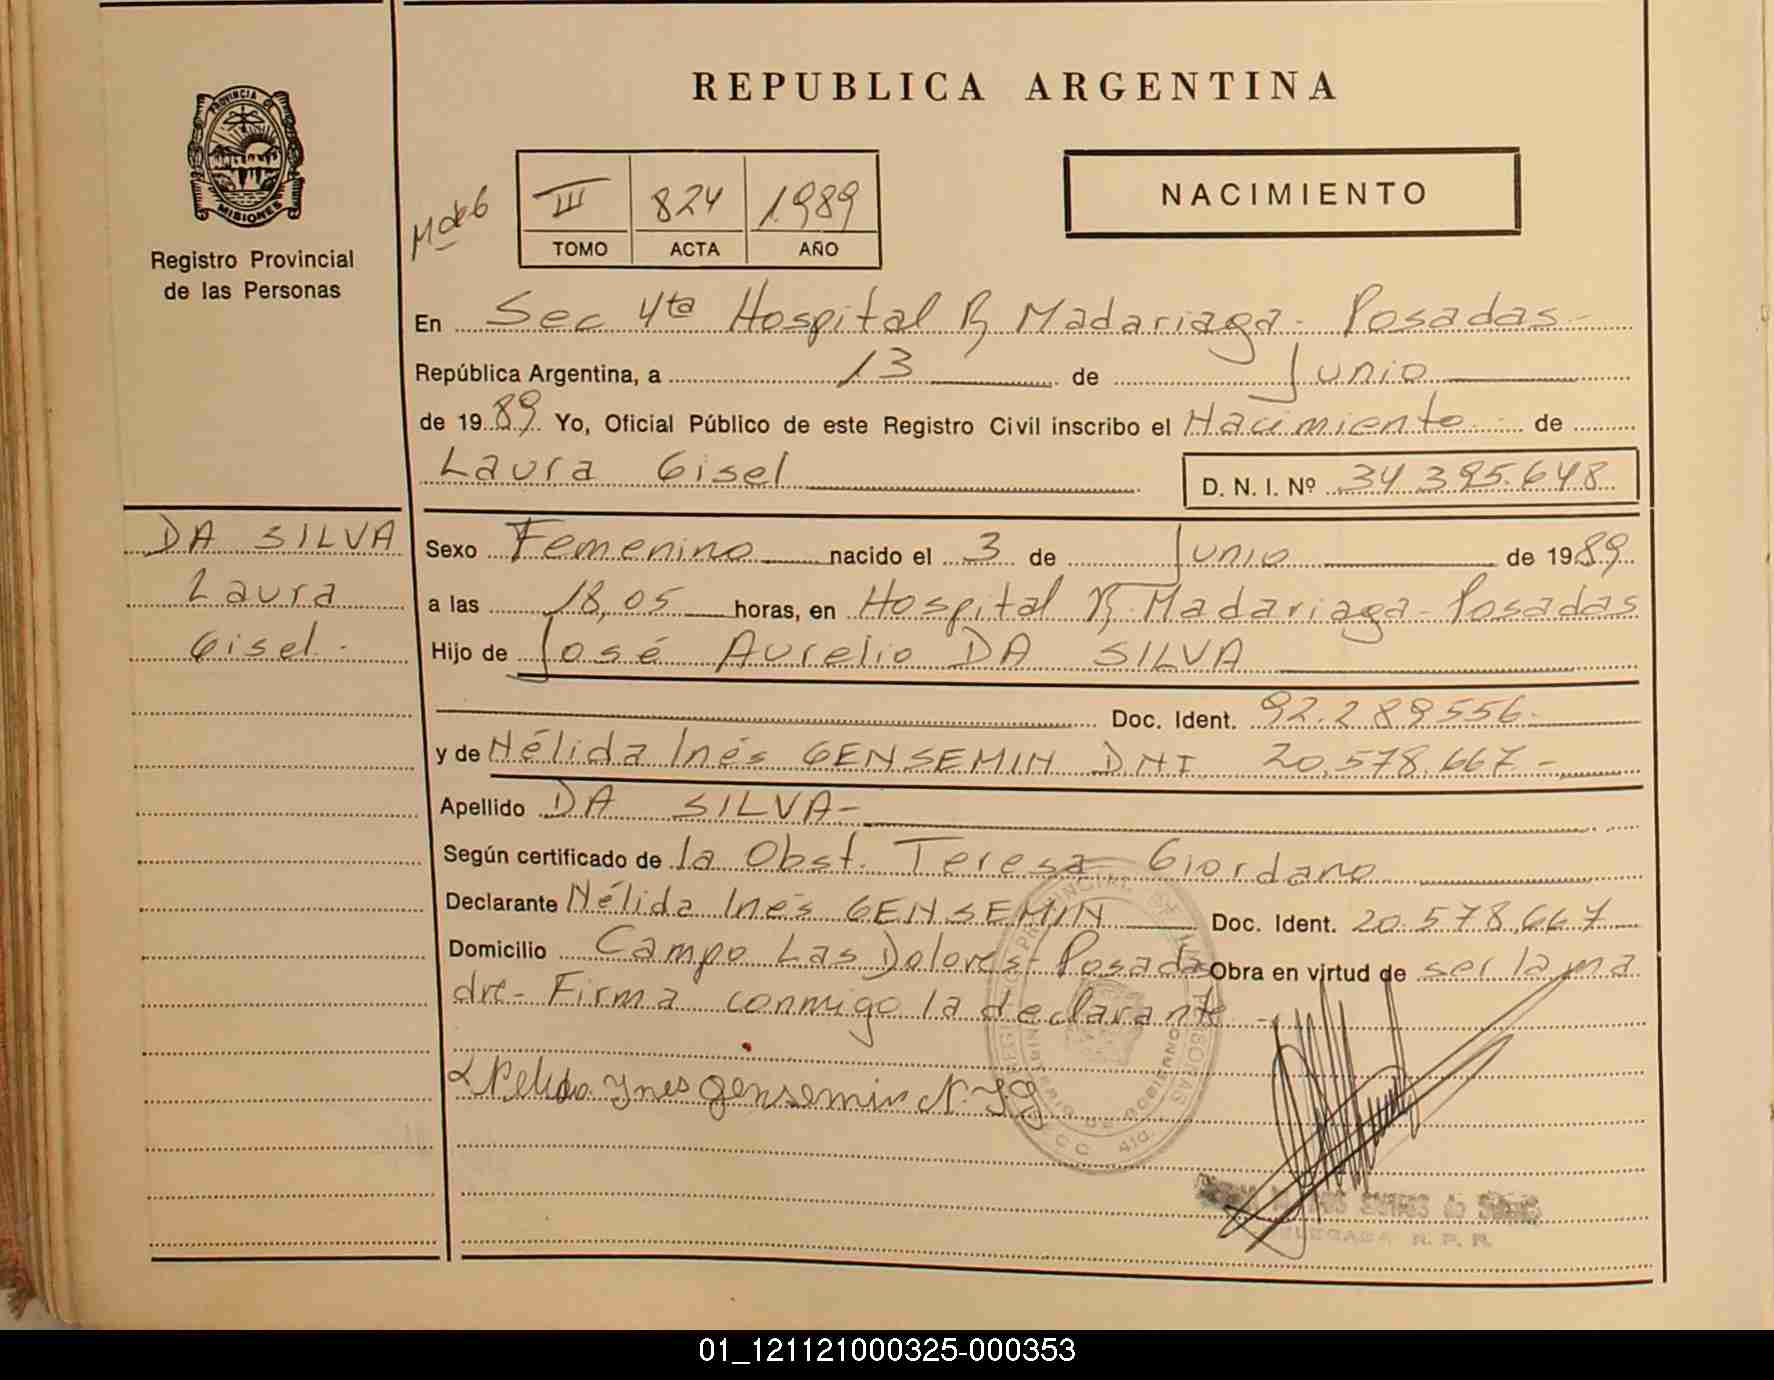 REPUBLICA ARGENTINA
PROVINCIA DE
MISIONES
Registro Provincial
de las Personas
III 824 1989
TOMO ACTA AÑO
NACIMIENTO
En Sec 4ta Hospital R Madariaga - Posadas -
República Argentina, a 13 de Junio
de 1989 Yo, Oficial Público de este Registro Civil inscribo el Nacimiento de
Laura Gisel D. N. I. Nº 34.395.648
DA SILVA
Laura
Gisel.-
Sexo Femenino nacido el 3 de Junio de 1989
a las 18,05 horas, en Hospital R. Madariaga - Posadas
Hijo de José Aurelio DA SILVA
Doc. Ident. 92.289556-
y de Nélida Inés GENSEMIN DNI 20.578.667.-
Apellido DA SILVA-
Según certificado de la Obst. Teresa Giordano
Declarante Nélida Inés GENSEMIN Doc. Ident. 20.578.667
Domicilio Campo Las Dolores - Posadas Obra en virtud de ser la ma
dre- Firma conmigo la declarante -
Nelida Ynes Gensemin N. Y G
DELEGADA R. P. P.
01_121121000325-000353